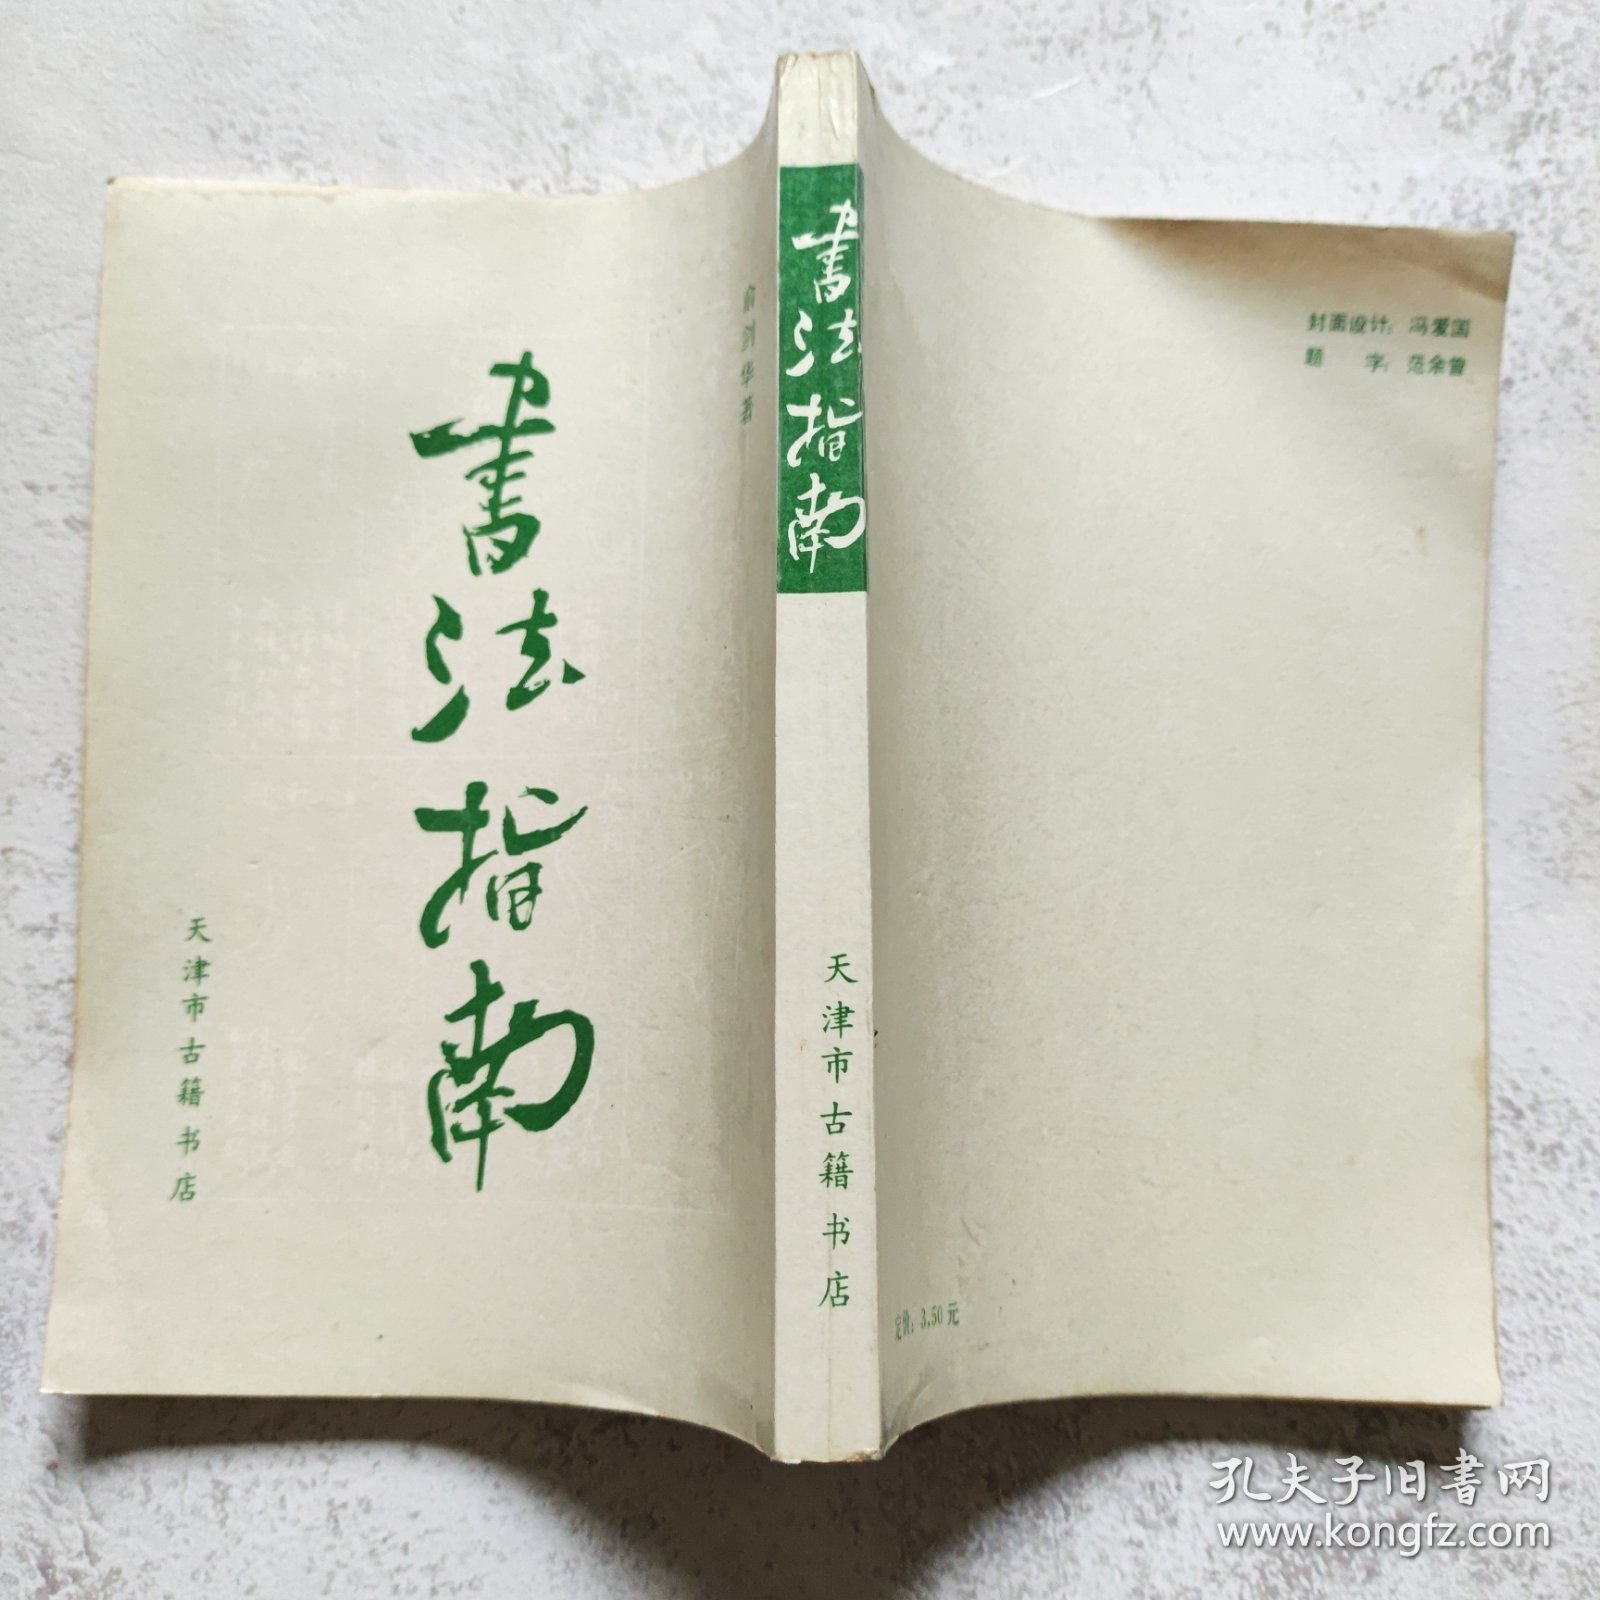 俞剑华著
書法指南
天津市古籍书店
書法指南
天津市古籍书店
封面设计：冯爱国
题 字：范余曾
定价：3.50元
孔夫子旧書网
www.kongfz.com